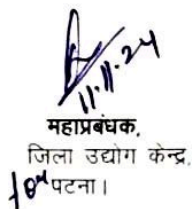 11.11.24
महाप्रबंधक,
जिला उद्योग केन्द्र,
पटना।